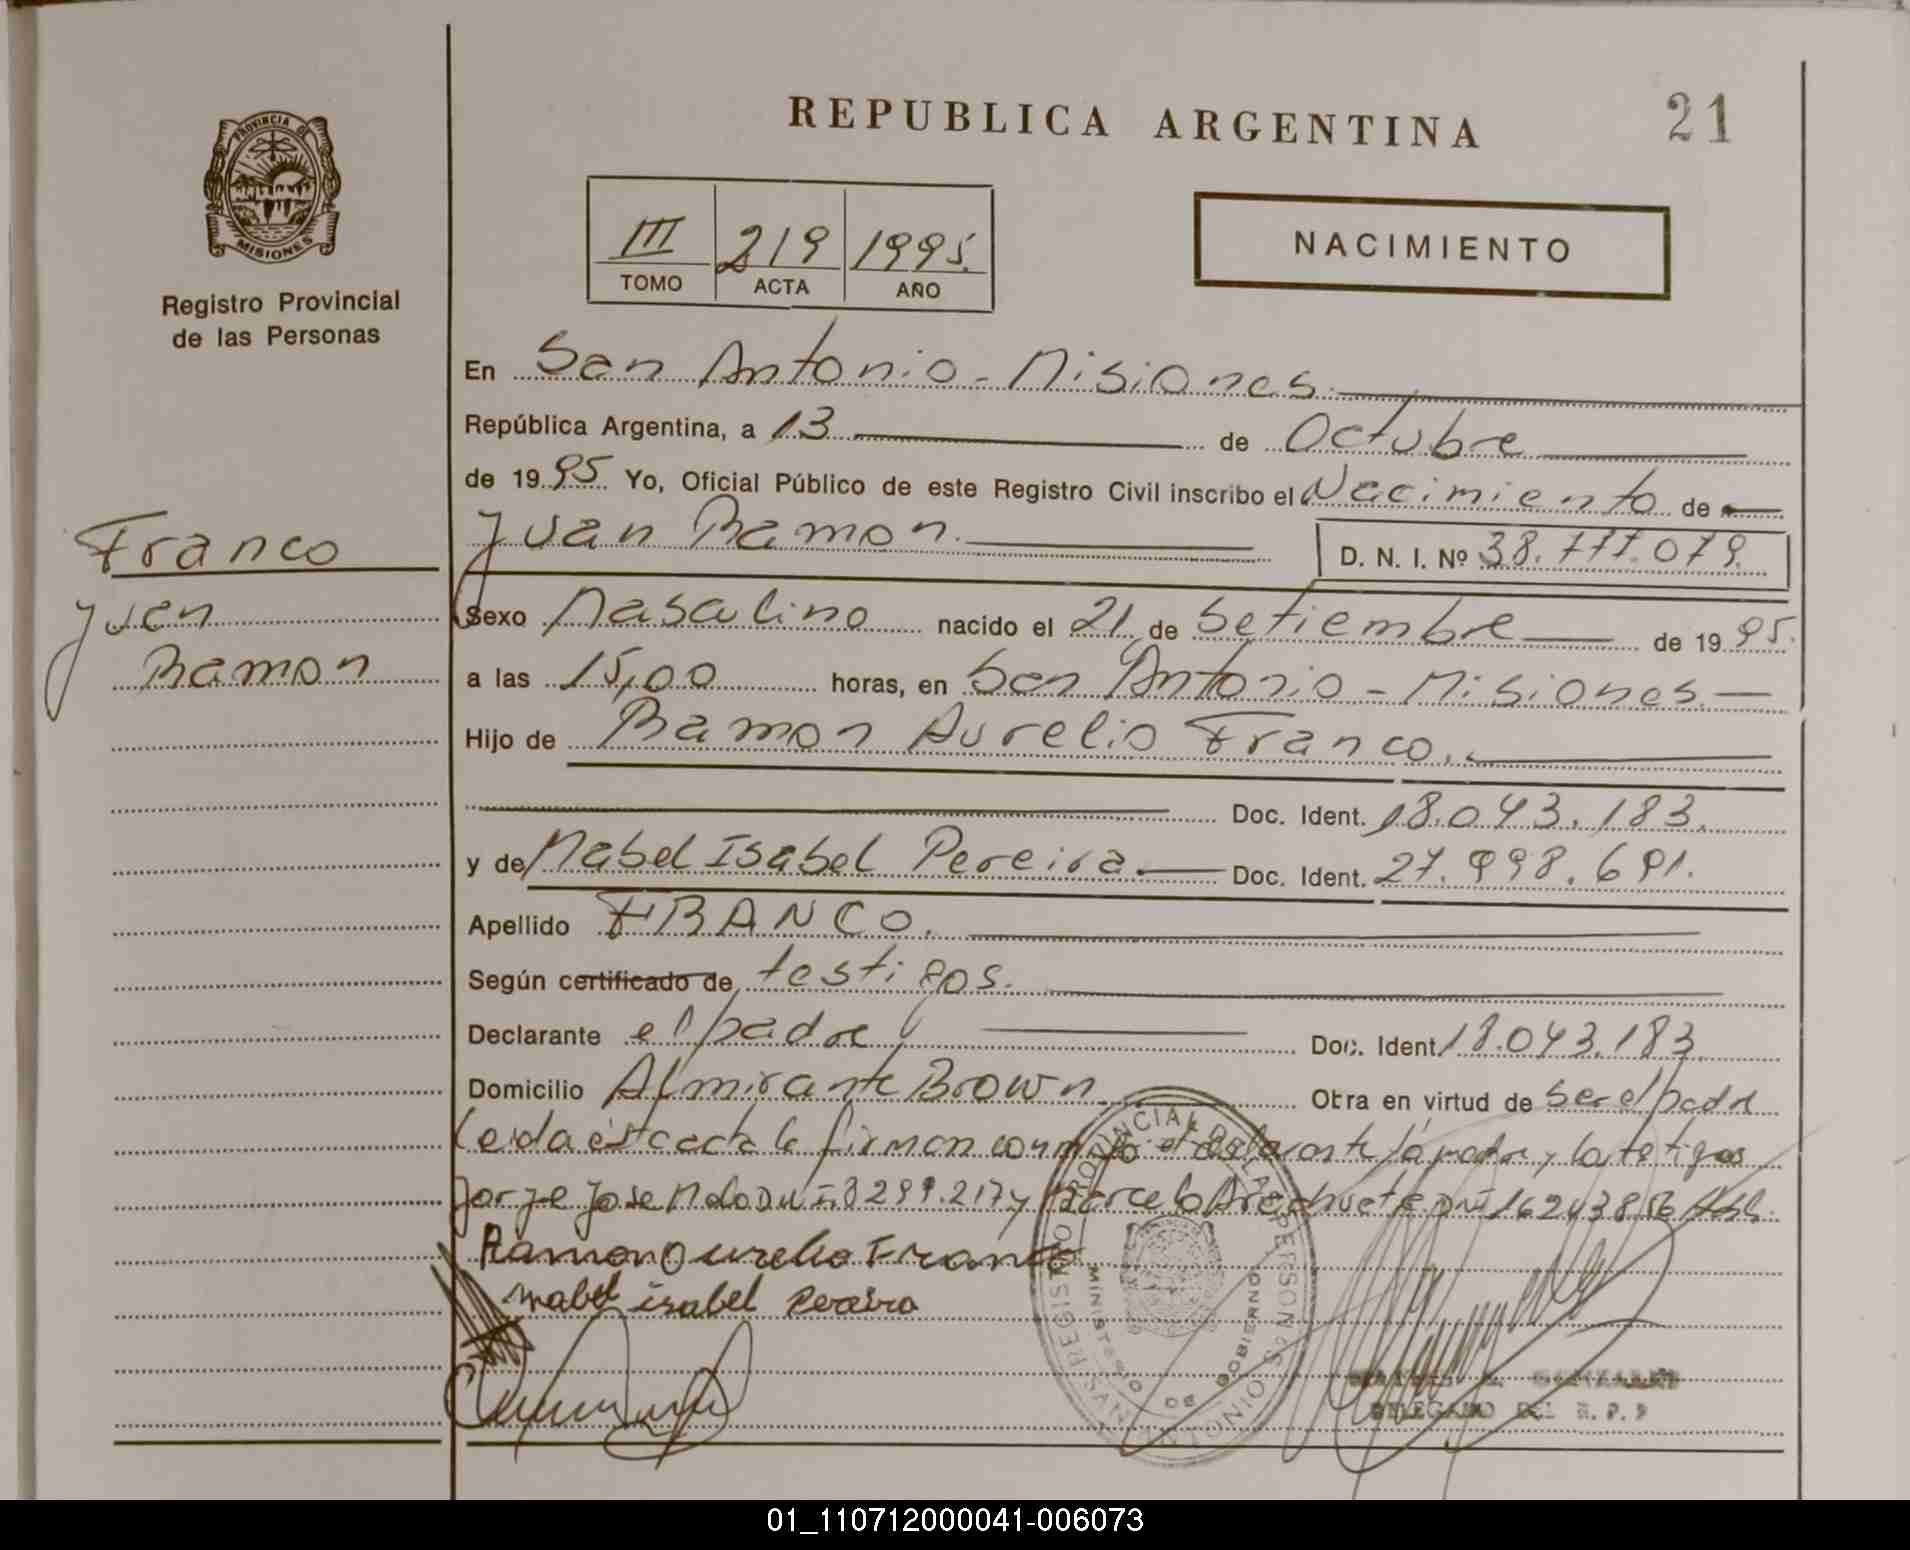 REPUBLICA ARGENTINA
21
PROVINCIA DE
MISIONES
Registro Provincial
de las Personas
III 219 1995.
TOMO ACTA AÑO
NACIMIENTO
En San Antonio - Misiones.
República Argentina, a 13 de Octubre
de 1995 Yo, Oficial Público de este Registro Civil inscribo el Nacimiento de
Juan Ramon. D. N. I. Nº 38.777.079.
Franco
Juan
Ramon
Sexo Masculino nacido el 21 de Setiembre de 1995.
a las 15,00 horas, en San Antonio - Misiones.
Hijo de Ramon Aurelio Franco.
Doc. Ident. 18.043.183.
y de Mabel Isabel Pereira Doc. Ident. 27.998.691.
Apellido FRANCO.
Según certificado de testigos.
Declarante el padre Doc. Ident. 18.043.183.
Domicilio Almirante Brown. Otra en virtud de ser el padre
Leida ésta acta la firman conmigo el declarante la madre y los testigos
Jorge Jose DNI 8299.217 y Marcelo DNI
Ramon Aurelio Franco
Mabel isabel Pereira
REGISTRO PROVINCIAL DE LAS PERSONAS
MINISTERIO DE GOBIERNO
SAN ANTONIO
DELEGADO DEL R.P.P
01_110712000041-006073